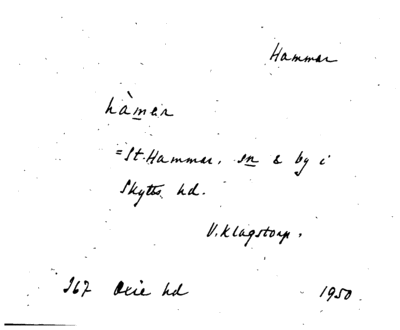 Hammar
hàmer
= St. Hammar, sn & by i
Skytts hd.
V. Klagstorp.
367 Oxie hd 1950